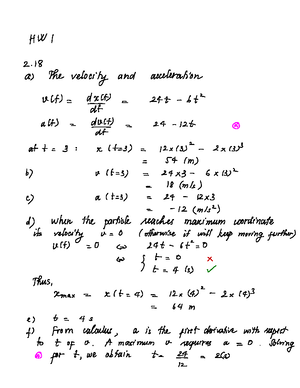 HW 1
2.18
a) The velocity and acceleration
v(t) = dx(t)/dt = 24t - 6t²
a(t) = dv(t)/dt = 24 - 12t
at t = 3 : x (t=3) = 12×(3)² - 2×(3)³
= 54 (m)
b) v (t=3) = 24×3 - 6×(3)²
= 18 (m/s)
c) a (t=3) = 24 - 12×3
= -12 (m/s²)
d) when the particle reaches maximum coordinate
its velocity v = 0 (otherwise it will keep moving further)
v(t) = 0 ⇔ 24t - 6t² = 0
⇔ { t = 0 ×
t = 4 (s) ✓
Thus,
xmax = x(t=4) = 12×(4)² - 2×(4)³
= 64 m
e) t = 4 s
f) From calculus, a is the first derivative with respect
to t of v. A maximum v requires a = 0. Solving
for t, we obtain t = 24/12 = 2(s)